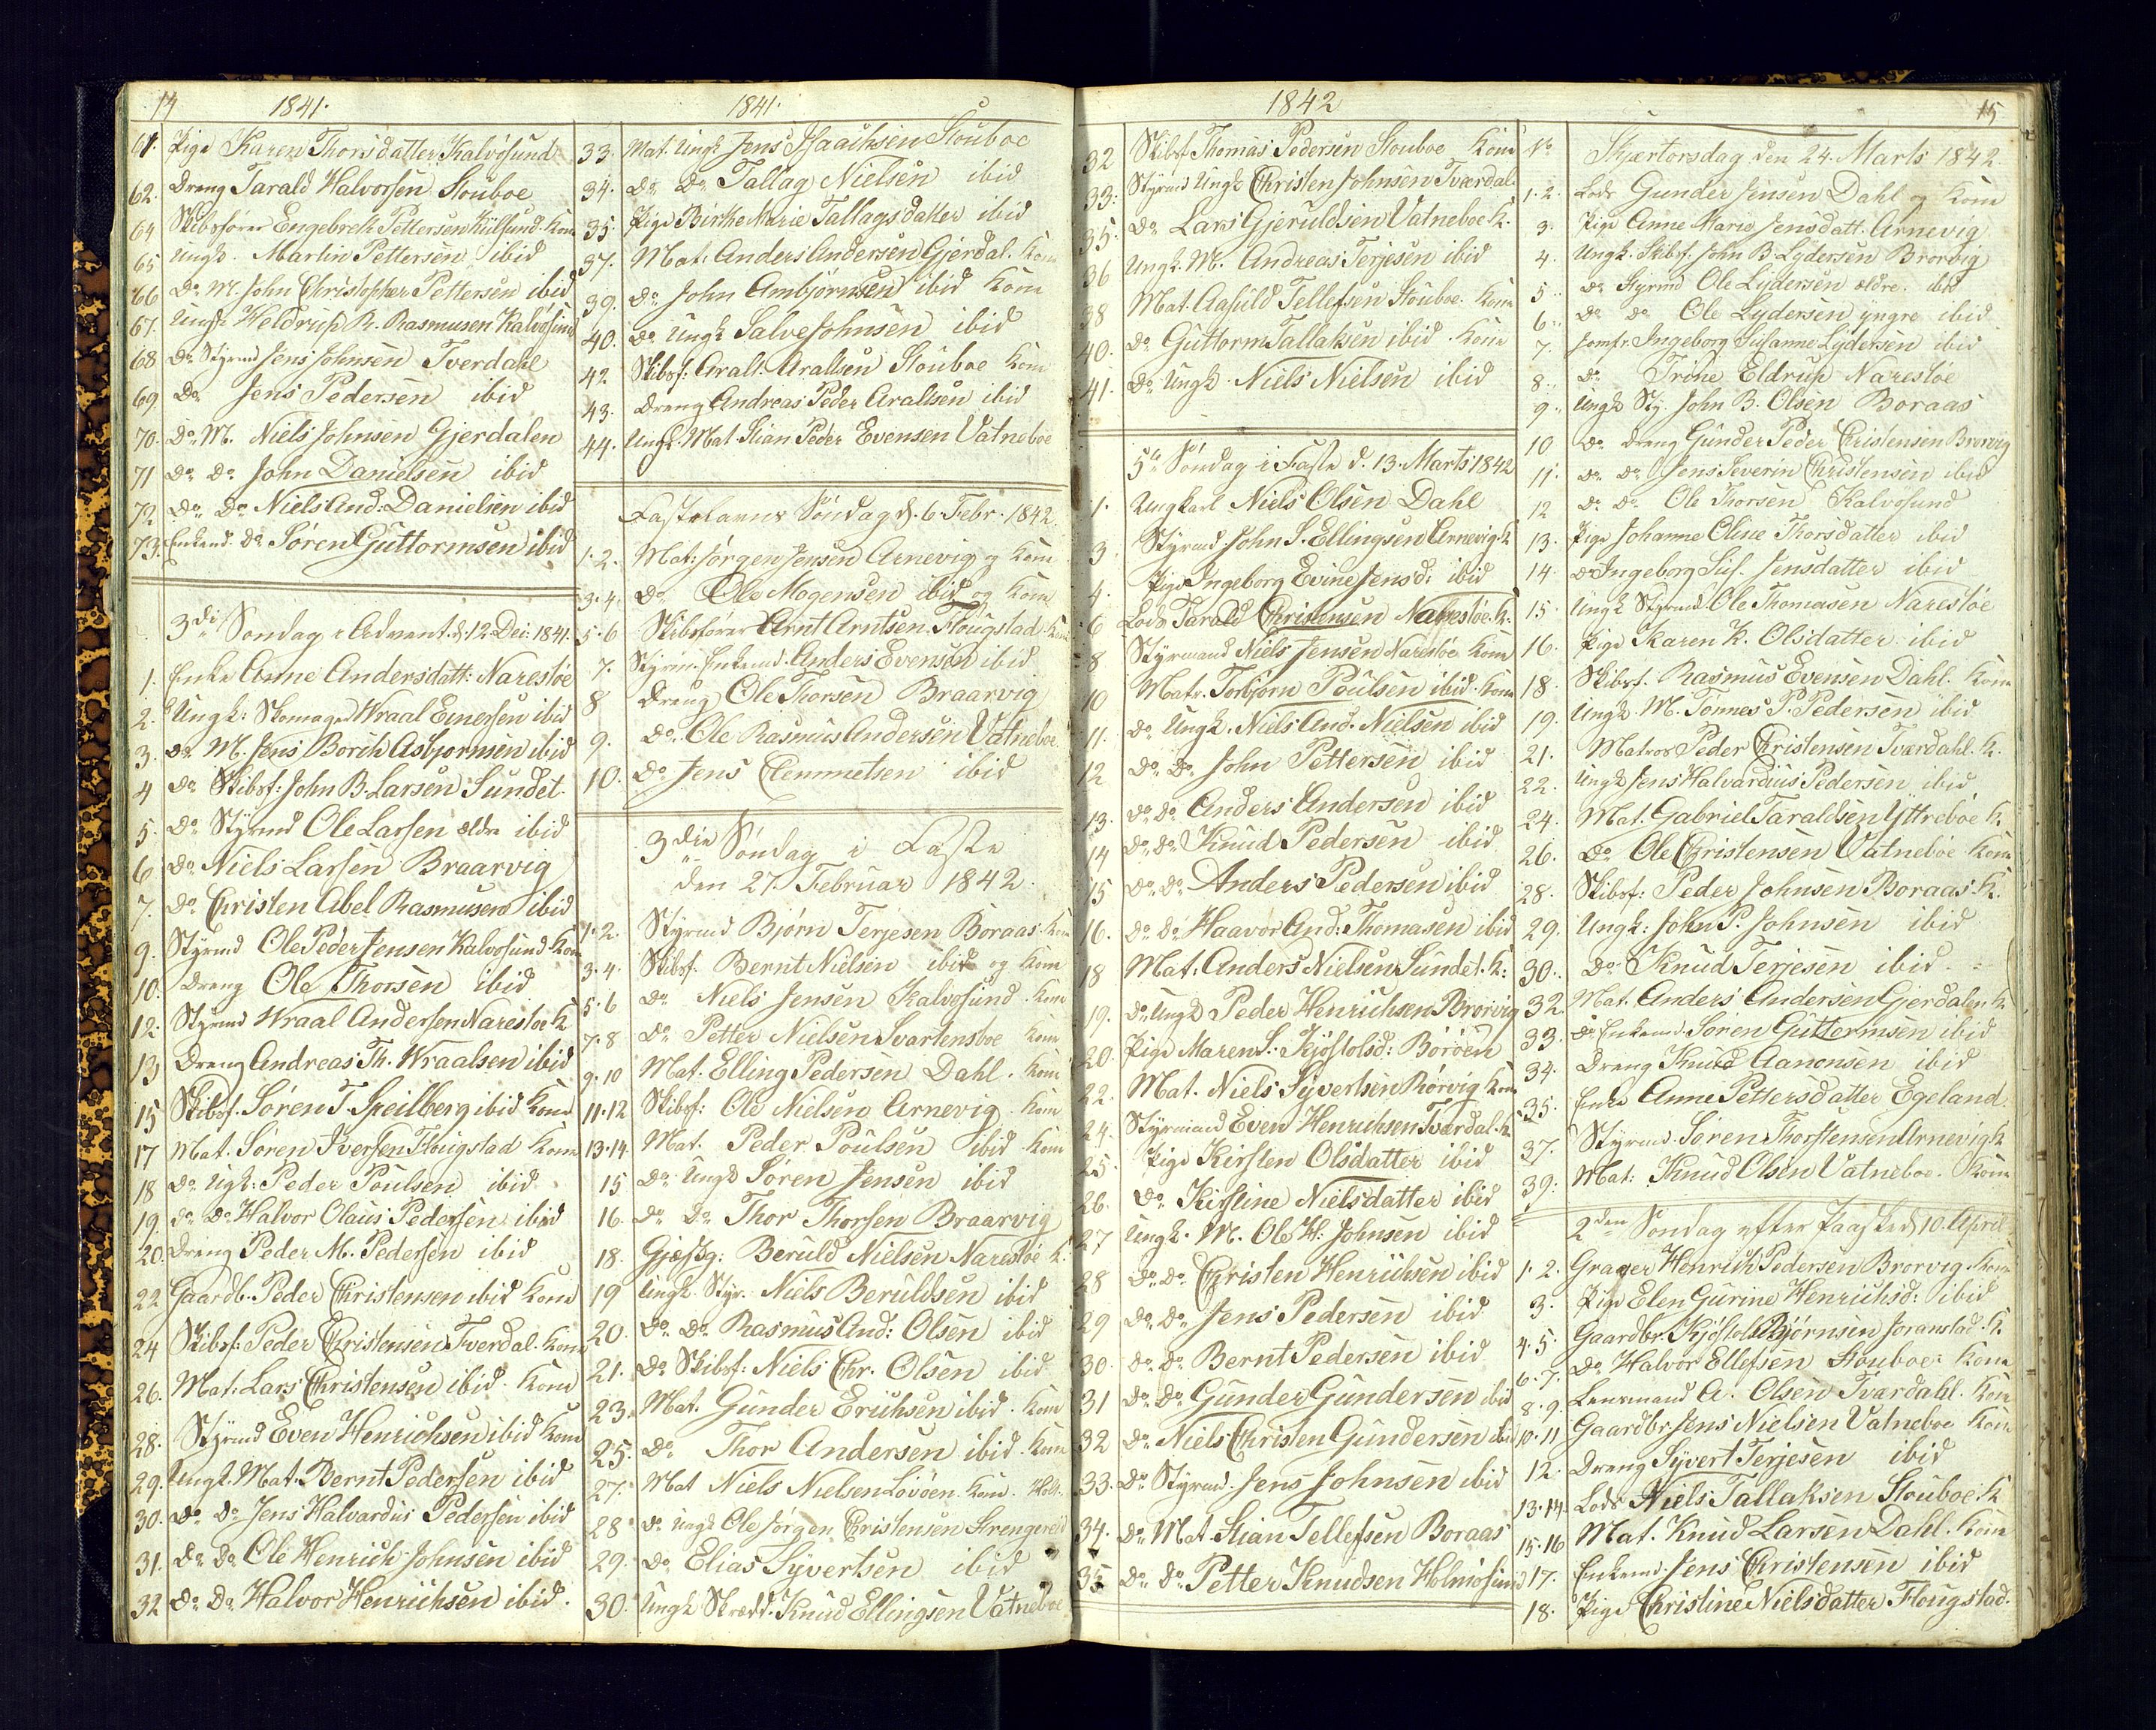 14 1841.
61. Pige Karen Thorsdatter Kalvøsund
62. Dreng Tarald Halvorsen Stouboe
64 Skibsfører Engebreth Pettersen Kilsund Kone
65 Ungk. Martin Pettersen ibid
66 Do M. John Christopher Pettersen ibid
67. Ungk Heldrup R. Rasmusen Kalvøsund
68 Do Styrmd Jens Johnsen Tverdahl
69. Do Jens Pedersen ibid
70. Do M. Niels Johnsen Gjerdalen
71 Do Do John Danielsen ibid
72 Do Do Niels And: Danielsen ibid
73. Enkemd. Do Søren Guttormsen ibid
3die Søndag i Advent d. 12 Dec: 1841.
1. Enke Anne Andersdatt: Narestøe
2. Ungk: Skomager Wraal Einersen ibid
3. Do M. Jens Borch Asbjornsen ibid
4 Do Skibsf: John B. Larsen Sundet
5. Do Styrmd Ole Larsen ældre ibid
6 Do Niels Larsen Braarvig
7. Do Christen Abel Rasmusen ibid
9. Styrmd Ole Peder Jensen Kalvøsund Kone
10. Dreng Ole Thorsen ibid
12. Styrmd Wraal Andersen Narestøe K
13 Dreng Andreas Th. Wraalsen ibid
15 Skibsf. Søren T. Speilberg ibid Kone
17 Mat. Søren Iversen Flougstad Kone
18 Do Ugk: Peder Poulsen ibid
19. Do Do Halvor Olaus Pedersen ibid
20. Dreng Peder M. Pedersen ibid
22 Gaardb. Peder Christensen ibid Kone
24 Skibsf: Peder Christensen Tverdal. Kone
26. Mat: Lars Christensen ibid. Kone
28. Styrmd Even Henrichsen ibid Kone
29. Ungk. Mat. Bernt Pedersen ibid
30. Do Do Jens Halvardus Pedersen ibid
31. Do Do Ole Henrich Johnsen ibid
32 Do Do Halvor Henrichsen ibid.
1841.
33. Mat. Ungk Jens Isaachsen Stouboe
34. Do Do Tallag Nielsen ibid
35. Pige Birthe Marie Tallagsdatter ibid
37. Mat: Anders Andersen Gjerdal. Kone
39. Do John Ambjörnsen ibid Kone
40. Do Ungk Salve Johnsen ibid
42 Skibsf: Aralt Aralsen Stouboe Kone
43. Dreng Andreas Peder Aralsen ibid
44. Ungk. Mat Stian Peder Evensen Vatneboe
Fastelavns Søndag d. 6. Febr. 1842.
1.2. Mat: Jørgen Jensen Arnevig og Kone
3.4. Do Ole Mogensen ibid og Kone
5.6 Skibsfører Arnt Arntsen Flougstad Kone
7. Styrm. Enkemd. Anders Evensen ibid
8 Dreng Ole Thorsen Braarvig
9. Do. Ole Rasmus Andersen Vatneboe
10. Do Jens Clemmetsen ibid
3die Søndag i Faste
den 27. Februar 1842.
1.2. Styrmd Bjørn Terjesen Boraas. Kone
3.4. Skibsf. Bernt Nielsen ibid og Kone
5.6 Do Niels Jensen Kalvøsund. Kone
7.8 Do Petter Nielsen Svartensboe Kone
9.10 Mat. Elling Pedersen Dahl. Kone
11.12 Skibsf: Ole Nielsen Arnevig. Kone
13.14. Mat. Peder Poulsen ibid Kone
15 Do Ungk Søren Jensen ibid
16. Do Do Thor Thorsen Braarvig
18. Gjæstg: Beruld Nielsen Narestøe K.
19 Ungk. Styr. Niels Beruldsen ibid
20. Do. Do. Rasmus And: Olsen ibid
21. Do Skibsf: Niels Chr. Olsen ibid
23. Mat. Gunder Erichsen ibid. Kone
25. Do Thor Andersen ibid. Kone
27. Mat Niels Nielsen Lövöen. Kone. Holt.
28 Do Ungk Ole Jörgen Christensen Strengereid
29. Do Elias Syvertsen ibid
30. Ungk Skredd. Knud Ellingsen Vatneboe
1842
32 Skibsf Thomas Pedersen Stouboe Kone
33: Styrmd Ungk Christen Johnsen Tværdal.
35. Do Lars Gjeruldsen Vatneboe K.
36 Ungk. M. Andreas Terjesen ibid
38 Mat. Aasuld Tellefsen Stouboe. Kone
40. Do Guttorm Tallaksen ibid. Kone
41. Do Ungk. Niels Nielsen ibid
5te Søndag i Faste d. 13. Marts 1842
1. Ungkarl Niels Olsen Dahl
3 Styrmd John S. Ellingsen Arnevig. K
4. Pige Ingeborg Evine Jensd: ibid
6 Lods Tarald Christensen Narrestøe. K.
8 Styrmand Niels Jensen Narestøe Kone
10 Matr. Torbjørn Poulsen ibid. Kone
11. Do Ungk. Niels And. Nielsen ibid
12 Do. Do. John Pettersen ibid
13. Do. Do Anders Andersen ibid
14 Do. Do Knud Pedersen ibid
15 Do. Do. Anders Pedersen ibid
16. Do. Do Haavor And: Thomasen ibid
18 Mat: Anders Nielsen Sundet. K:
19. Do. Ungk Peder Henrichsen Brorvig
20. Pige Maren S. Kjøstolsd: Böröen
22. Mat. Niels Syvertsen Rörvig Kone
24. Styrmand Even Henrichsen Tverdal. K.
25. Pige Kirsten Olsdatter ibid
26. Do Kirstine Nielsdatter ibid
27 Ungk. M. Ole H: Johnsen ibid
28 Do. Do. Christen Henrichsen ibid
29 Do. Do Jens Pedersen ibid
30. Do. Do Bernt Pedersen ibid
31 Do. Do Gunder Gundersen ibid
32 Do. Niels Christen Gundersen ibid
33. Do Styrmd. Jens Johnsen ibid
34. Do. Mat. Stian Tellefsen Boraas
35 Do. Do. Petter Knudsen Holmøsund
15
No Skjertorsdag den 24. Marts 1842
1.2. Lods Gunder Jensen Dahl og Kone
3. Pige Anne Marie Jensdatt. Arnevig
4. Ungk. Skibsf. John B. Lydersen Brorvig
5. Do Styrmd Ole Lydersen ældre. ibd
6. Do Do Ole Lydersen yngre ibid
7. Jomfr. Ingeborg Susanne Lydersen ibid
8. Do Trine Eldrup Narestøe
9. Ungk Sty. John B. Olsen Boraas
10 Do Dreng Gunder Peder Christensen Brorvig
11. Do Do Jens Severin Christensen ibid
12 Do Do Ole Thorsen Kalvøsund
13. Pige Johanne Oline Thorsdatter ibid
14. Do Ingeborg Sus. Jensdatter ibid
15. Ungk Styrmd. Ole Thomasen Narestöe
16. Pige Karen K. Olsdatter ibid
18. Skibsf. Rasmus Evensen Dahl. Kone
19. Ungk. M. Tönnes P. Pedersen ibid
21. Matros Peder Christensen Tværdahl. K.
22. Ungk Jens Halvardus Pedersen ibid
24. Mat. Gabriel Taraldsen Yttreböe K
26. Do Ole Christensen Vatneböe Kone
28. Skibsf: Peder Johnsen Boraas. K.
29. Ungk: John P. Johnsen ibid
30. Do Knud Terjesen ibid
32. Mat. Anders Andersen Gjerdalen K
33. Do Enkemd. Søren Guttormsen ibid
34. Dreng Knud Aanonsen ibid
35. Enke Anne Pettersdatter Egeland
37. Styrmd. Søren Thorstensen Arnevig K
39. Mat: Knud Olsen Vatneboe. Kone
2den Søndag efter Paaske d. 10. April
1.2. Graver Henrich Pedersen Brorvig. Kone
3. Pige Elen Gurine Henrichsd: ibid
4.5. Gaardbr. Kjöstolv Bjørnsen Joranstad. K.
6.7. Do Halvor Ellefsen Stouboe. Kone
8.9. Lensmand A. Olsen Tvardahl. Kone
10.11 Gaardbr Jens Nielsen Vatneboe Kone
12. Dreng Syvert Terjesen ibid
13.14. Lods Niels Tallaksen Stouboe. K
15.16 Mat. Knud Larsen Dahl. Kone
17. Enkemd. Jens Christensen ibid
18. Pige Christine Nielsdatter Flougstad.